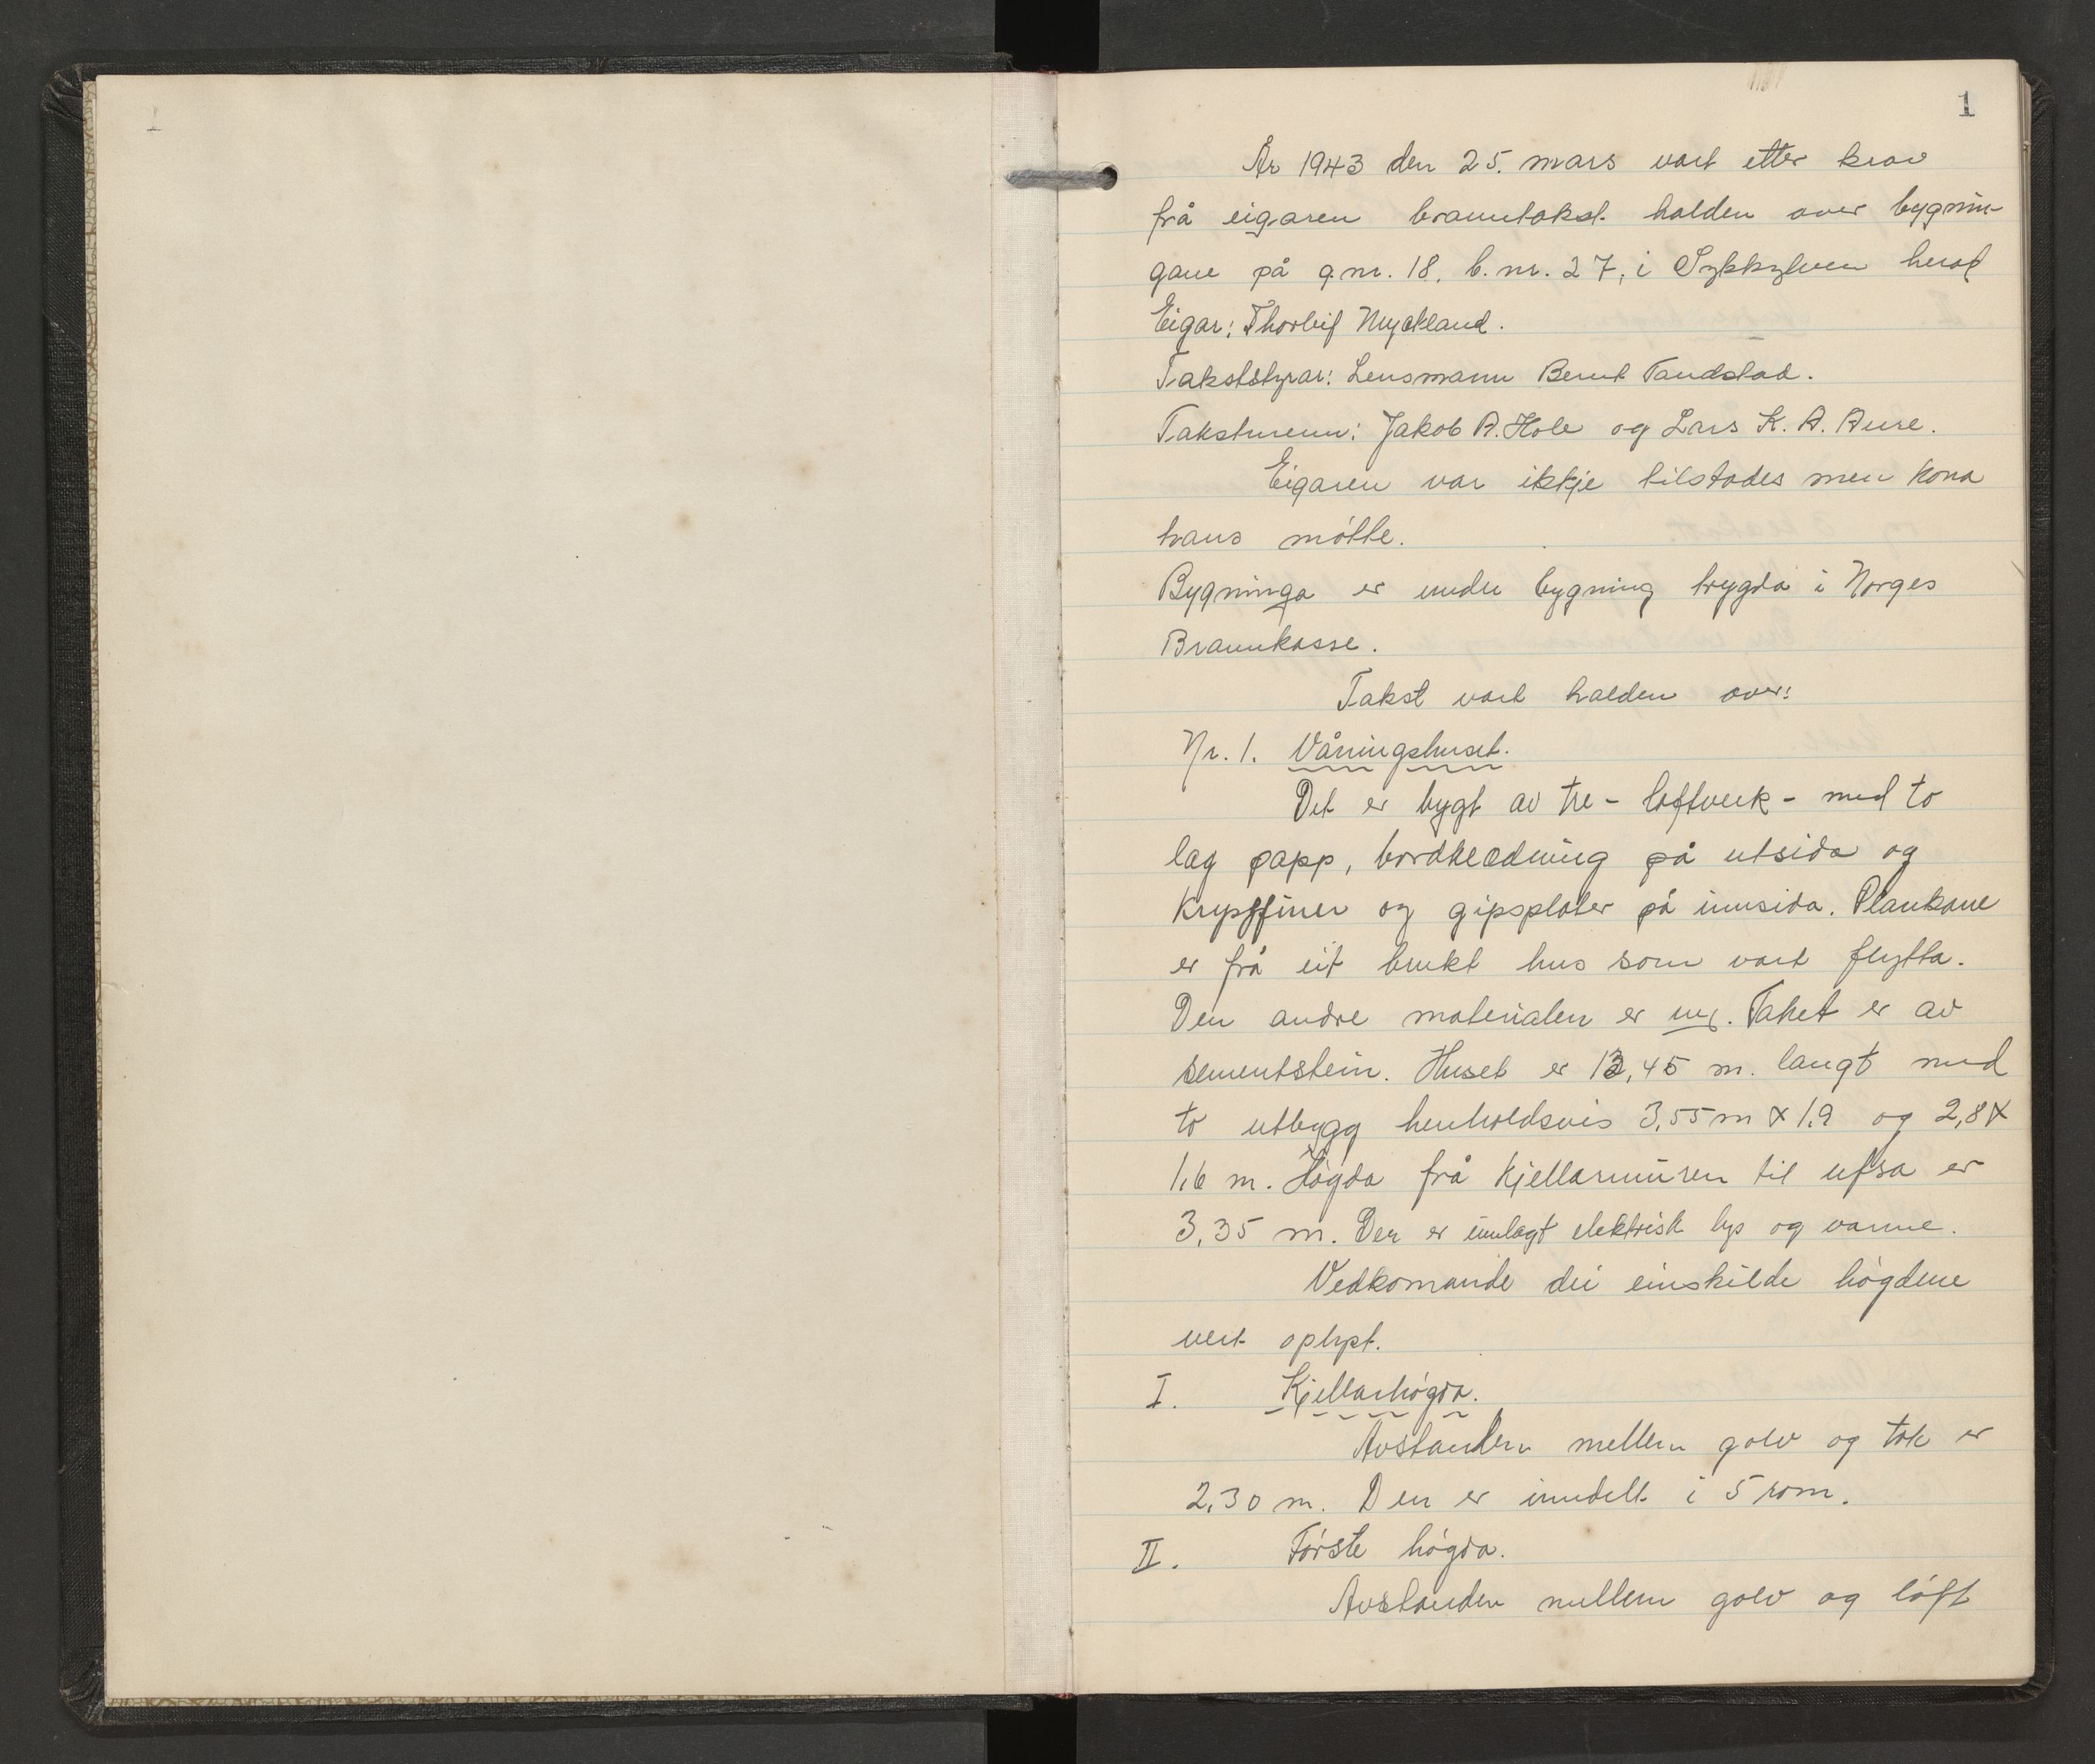 1
År 1943 den 25. mars vart etter krav
frå eigaren branntakst halden over bygnin-
gane på g.nr. 18, b.nr. 27, i Sykkylven herad
Eigar: Thorleif Myckland.
Takststyrar: Lensmann Bernt Tandstad.
Takstmenn: Jakob A. Hole og Lars K. A. Aure.
Eigaren var ikkje tilstades men kona
hans møtte.
Bygninga er under bygning trygda i Norges
Brannkasse.
Takst vart halden over:
Nr. 1. Våningshuset.
Det er bygt av tre - loftverk - med to
lag papp, bordklædning på utsida og
Kryssfiner og gipsplater på innsida. Plankane
er frå eit brukt hus som vart flytta.
Den andre materialen er ny. Taket er av
sementstein. Huset er 13,45 m. langt med
to utbygg henholdsvis 3,55 m x 1,9 og 2,8 x
1,6 m. Høgda frå kjellarmuren til ufsa er
3,35 m. Der er innlagt elektrisk lys og varme.
Vedkomande dei einskilde høgdene
vert oplyst.
I. Kjellarhøgda.
Avstanden mellem golv og tak er
2,30 m. Den er inndelt i 5 rom.
II. Første høgda.
Avstanden mellem golv og loft